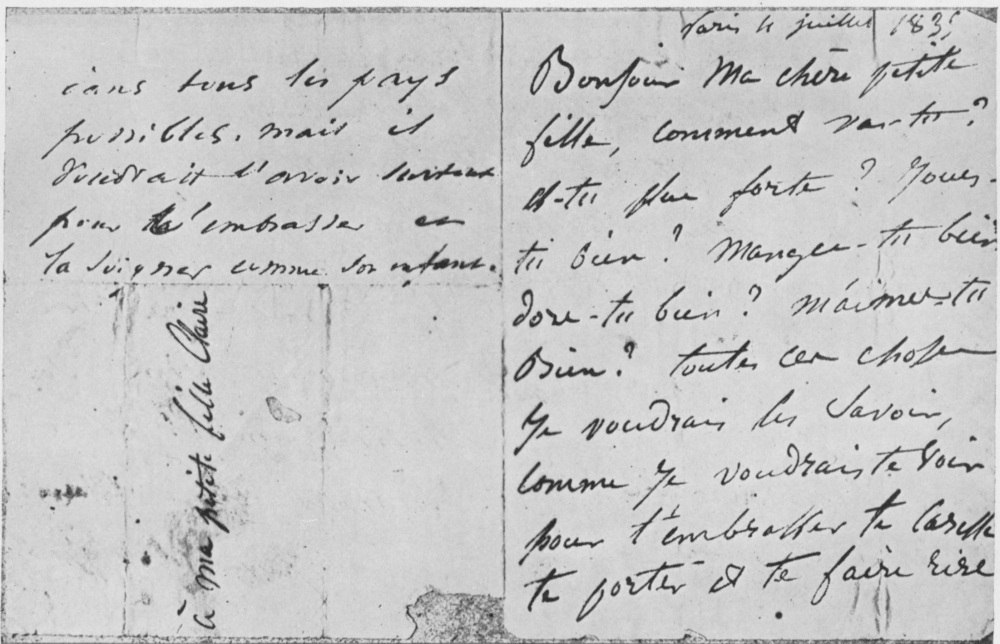 Paris 4 juillet 183
Bonjour Ma chère petite
fille, comment vas-tu?
es-tu plus forte? Joues-
tu bien? Manges-tu bien
dors-tu bien? m'aimes-tu
Bien? toutes ces choses
Je voudrais les savoir,
comme Je voudrais te voir
pour t'embrasser te caresser
te porter et te faire rire
dans tous les pays
possibles. mais il
voudrait t'avoir surtout
pour t'embrasser et
la soigner comme son enfant.
à ma petite fille Claire